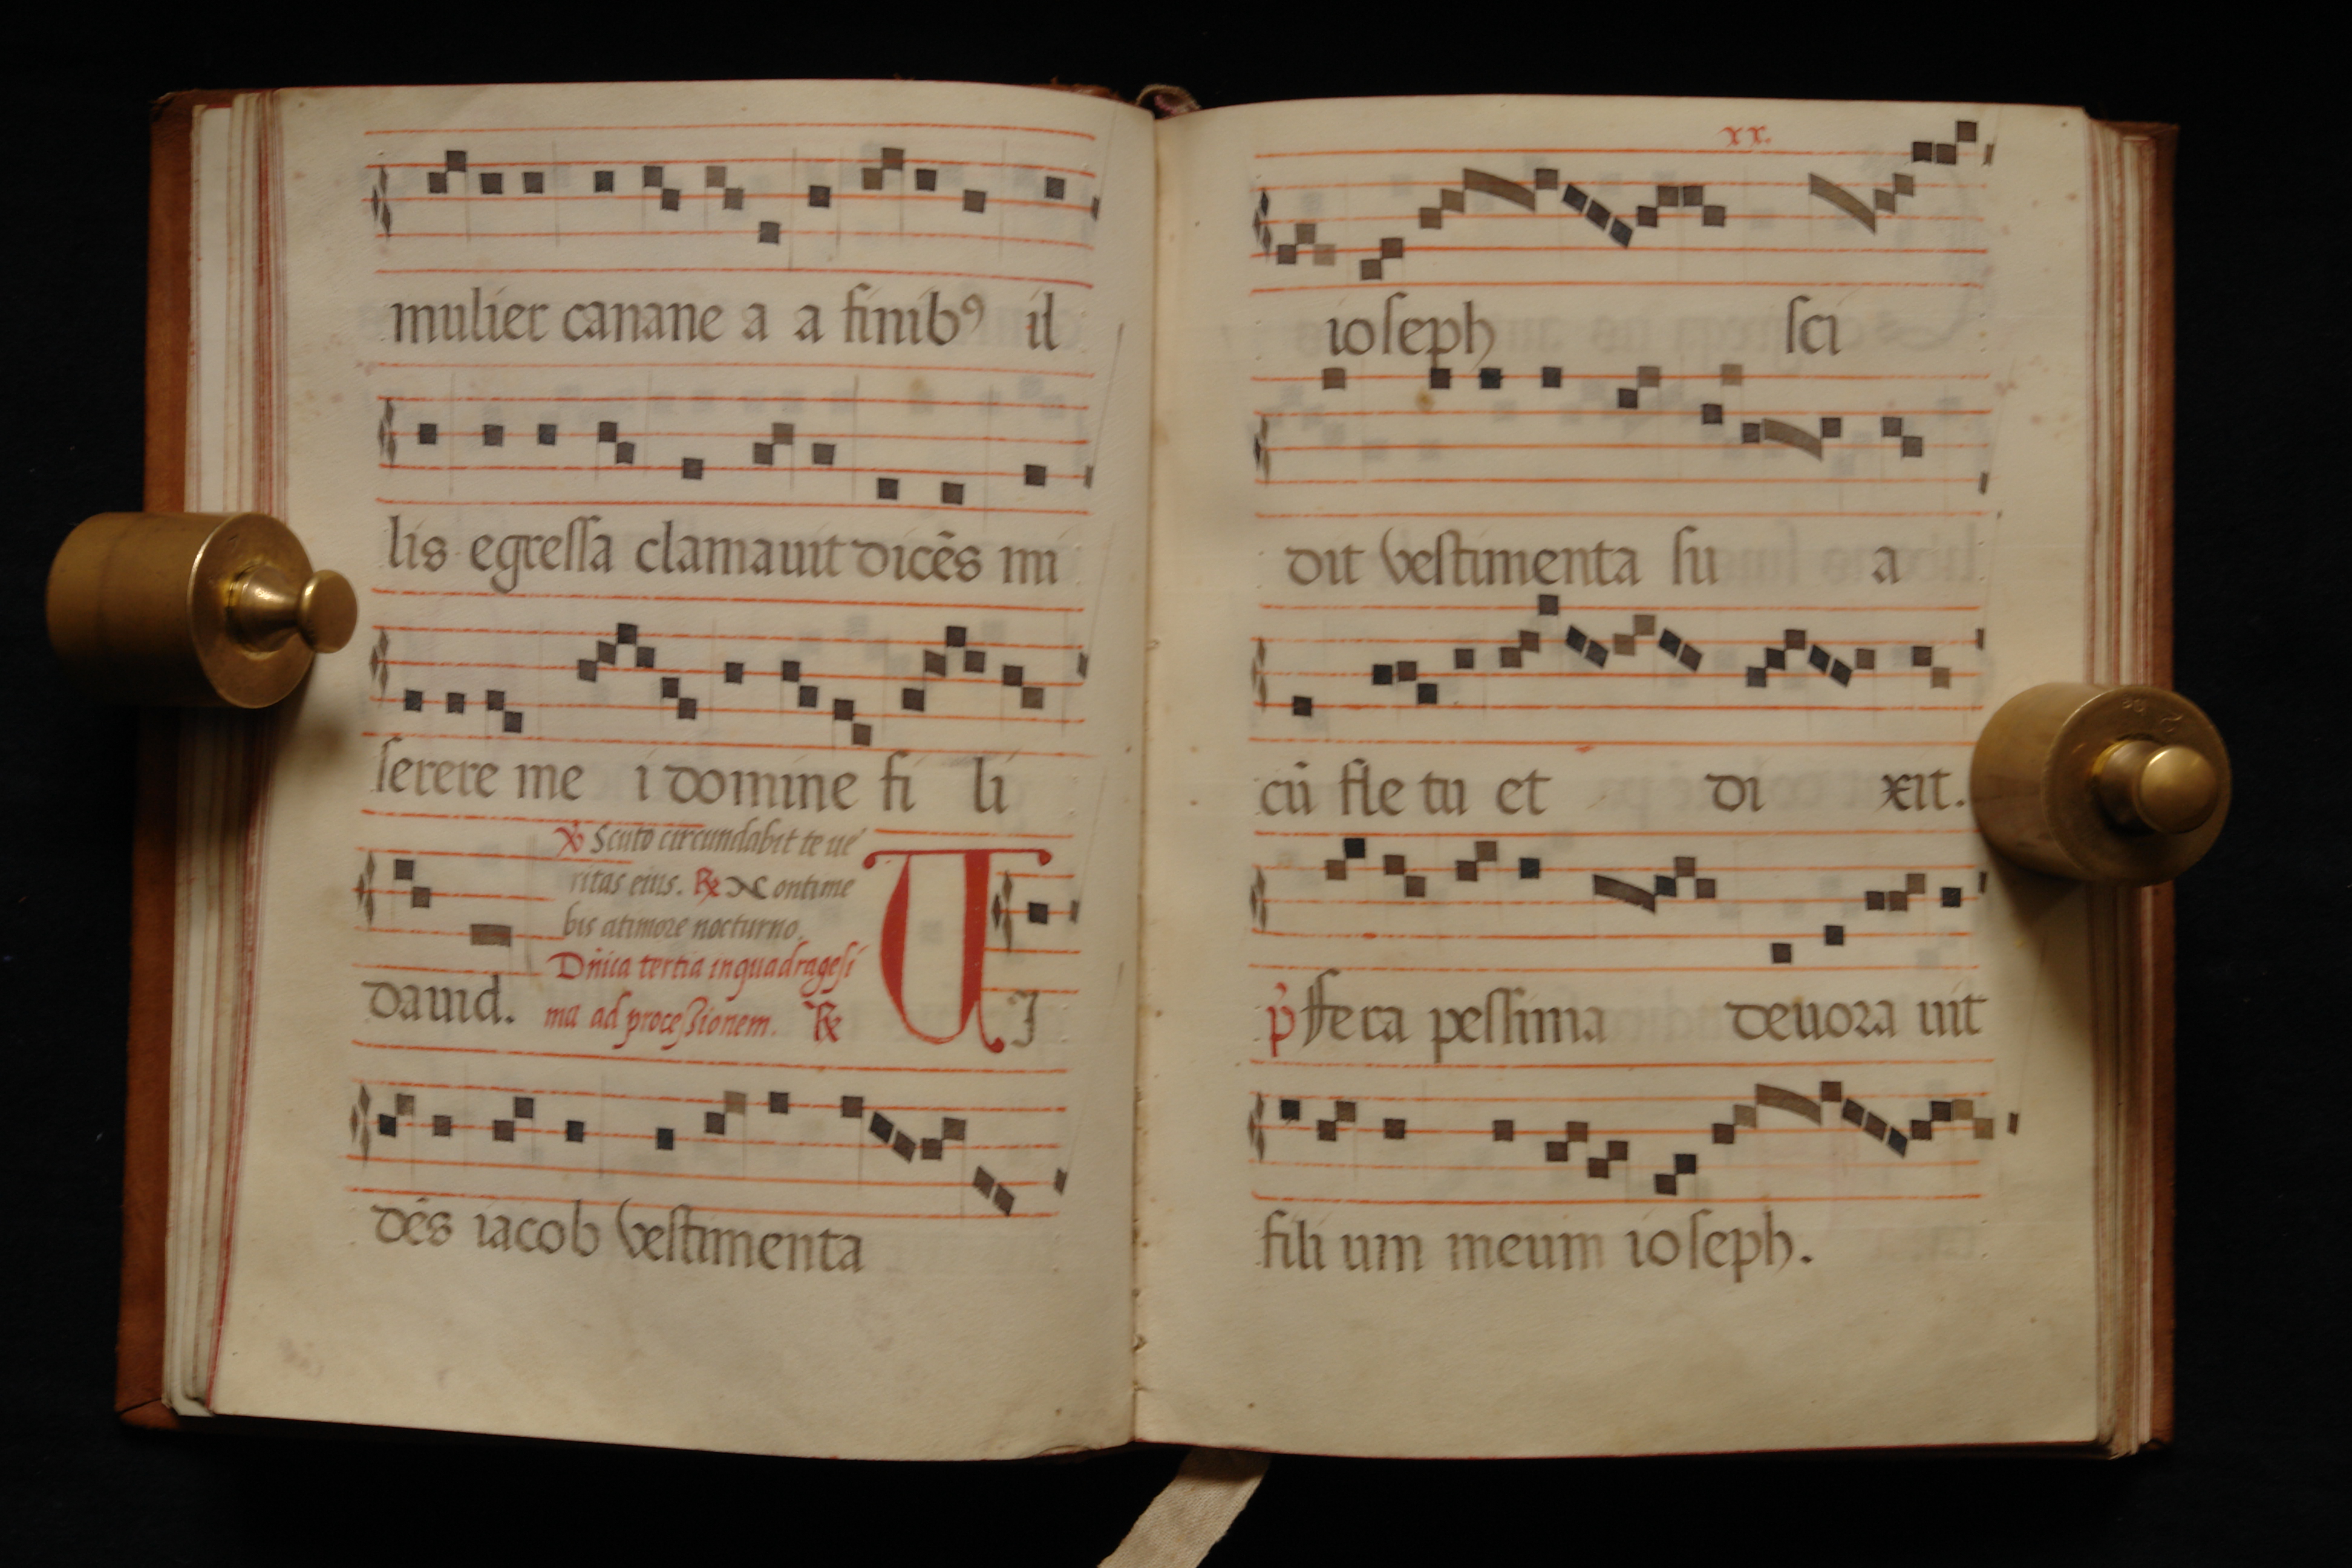 mulier canane a a finibꝰ il
lis egressa clamauit dicēs mi
serere me i domine fi li
℣ Scuto circundabit te ue
ritas eius. ℟ Non time
bis atimore nocturno.
Dn̄ica tertia inquadragesi
ma ad processionem. ℟
dauid. UJ
dēs iacob vestimenta
xx.
ioseph sci
dit vestimenta su a
cū fle tu et di xit.
p̄ ffera pessima deuora uit
fili um meum ioseph.